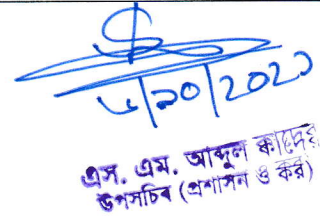 ৮/১০/2021
এস. এম. আব্দুল কাদের
উপসচিব (প্রশাসন ও কর)